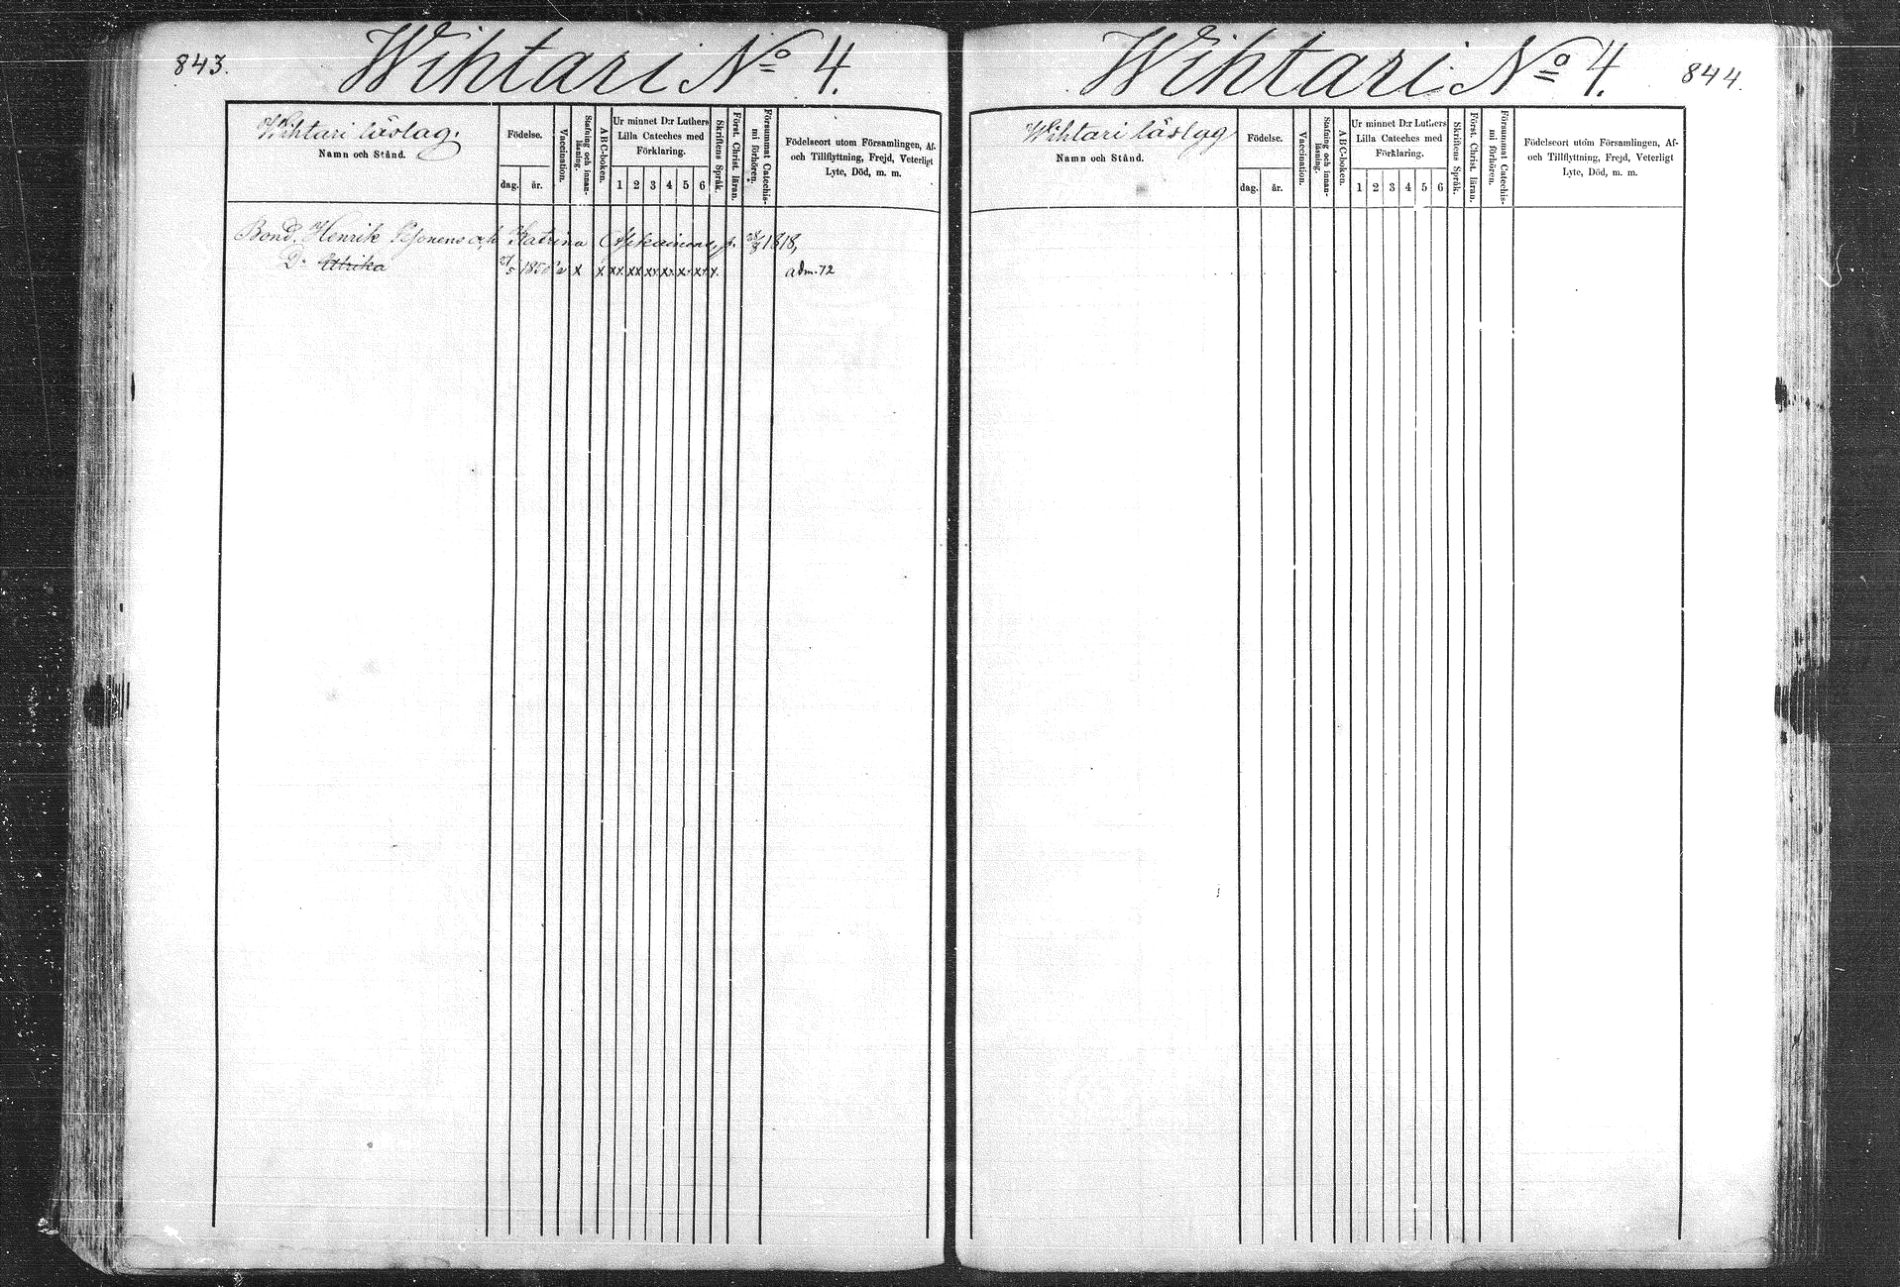 843.
Wihtari No 4.
Wihtari läslag.
Namn och Stånd.
Födelse.
dag. år.
Vaccination.
Stafning och innanläsning.
ABC-boken.
Ur minnet D:r Luthers
Lilla Cateches med
Förklaring.
1 2 3 4 5 6
Skriftens Språk.
Först. Christ. läran.
Försummat Catechismi förhören.
Födelseort utom Församlingen, Af-
och Tillflyttning, Frejd, Veterligt
Lyte, Död, m. m.
Bond. Henrik och Katrina 1818,
D: Ulrika 185 x x xx xx xx x. x. xx x. adm. 72
Wihtari No 4.
844.
Wihtari läslag
Namn och Stånd.
Födelse.
dag. år.
Vaccination.
Stafning och innanläsning.
ABC-boken.
Ur minnet D:r Luthers
Lilla Cateches med
Förklaring.
1 2 3 4 5 6
Skriftens Språk.
Först. Christ. läran.
Försummat Catechismi förhören.
Födelseort utom Församlingen, Af-
och Tillflyttning, Frejd, Veterligt
Lyte, Död, m. m.